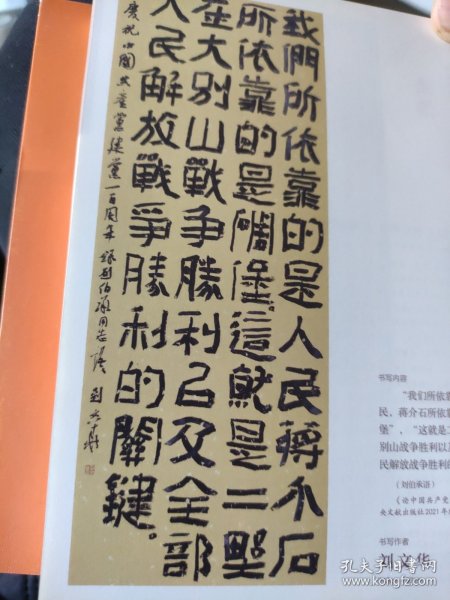 我們所依靠的是人民蔣介石
所依靠的是碉堡。這就是二野
在大别山戰争勝利以及全部
人民解放戰爭勝利的關鍵。
慶祝中國共產黨建黨一百周年 錄劉伯承同志語 劉文華
书写内容
“我们所依靠
民，蒋介石所依靠
堡”，“这就是二
别山战争胜利以及
民解放战争胜利的
（刘伯承语）
《论中国共产党
央文献出版社2021年
书写作者
刘文华
孔夫子旧书网